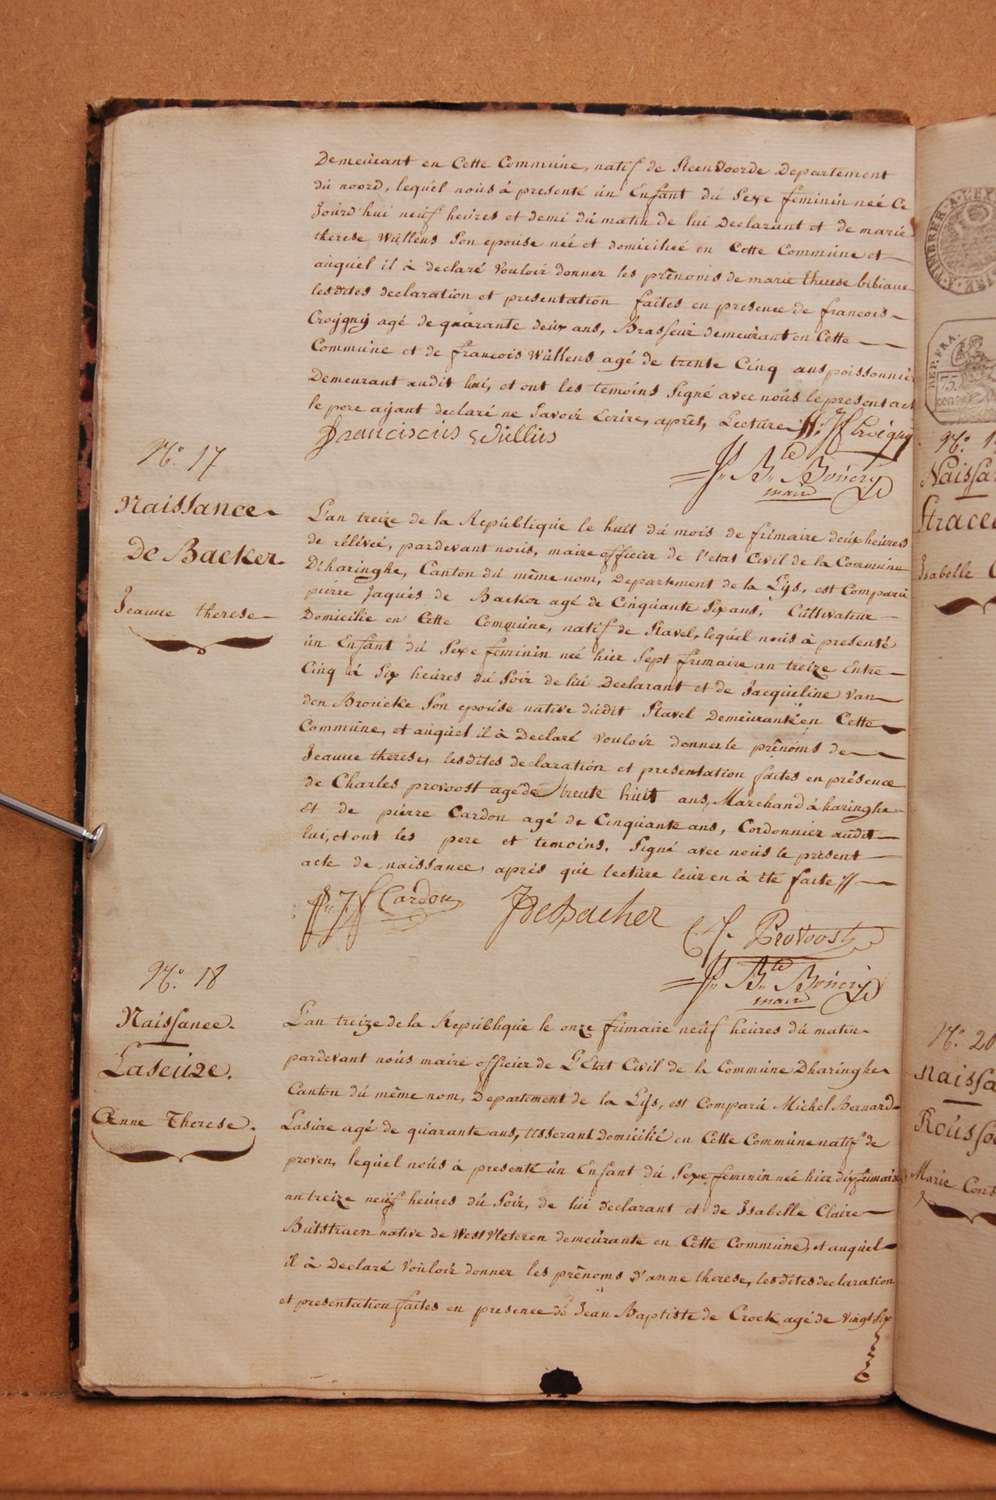 Demeurant en Cette Commune, natif de Steenvoorde Departement
du noord, lequel nous à presenté un Enfant du Sexe feminin neé Ce
Jourd'hui neuf heures et demi du matin de lui Declarant et de marie
therese Wullens Son epouse neé et domiciliée en Cette Commune et
auquel il à declaré vouloir donner les prênoms de marie therese bibiane
lesdites declaration et presentation faites en presence de francois
Croijgnij agé de quarante deux ans, Brasseur demeurant en Cette
Commune et de francois Wullens agé de trente Cinq ans poissonnier
Demeurant audit lui, et ont les temoins Signé avec nous le present act
le pere aijant declaré ne Savoir Ecrire, aprés, Lecture
Franciscus Wullus
Jn Bte Bouery
maire
No. 17
Naissance
De Backer
Jeanne therese
L'an treize de la République le huit du mois de frimaire deux heures
de rélévéé, pardevant nous, maire officier de l'etat Civil de la Commune
D'haringhe, Canton du même nom, Departement de la Lijs, est Comparu
pierre Jaques de Backer agé de Cinquante Six ans, Cultivateur
Domicilie en Cette Commune, natif de Stavel, lequel nous à presenté
un Enfant du Sexe feminin neé hier Sept frimaire an treize Entre
Cinq à Six heures du Soir de lui Declarant et de Jacqueline Van
den Broucke Son epouse native dudit Stavel Demeurante en Cette
Commune, et auquel il à Declaré vouloir donner le prênoms de
Jeanne therese, lesdites declaration et presentation faites en présence
de Charles provoost agé de trente huit ans, Marchand à haringhe
Et de pierre Cardon agé de Cinquante ans, Cordonnier audit
lui, et ont les pere et temoins, Signé avec nous le present
acte de naissance, aprés que lecture leur en à été faite //
Cardon
JDeBacker
C J. Provoost
Jn Bte Bouery
maire
No. 18
Naissance.
Laseure.
Anne Therese.
L'an treize de la Republique le onze frimaire neuf heures du matin
pardevant nous maire officier de L'Etat Civil de la Commune Dharinghe
Canton du même nom, Departement de la Lijs, est Comparu Michel Bernard
Lasure agé de quarante ans, tisserant domicilié en Cette Commune natif de
proven, lequel nous à presenté un Enfant du Sexe feminin neé hier dix frimaire
an treize neuf heures du Soir, de lui declarant et de Isabelle Claire
Butstraen native de WestVleteren demeurante en Cette Commune, et auquel
il à Declaré vouloir donner les prênoms d'anne therese, les dites declaration
et presentation faites en presence de Jean Baptiste de Crock agé de vingt Six
No. 1
Naissa
Strace
Isabelle C
No. 20
Naissa
Rousso
Marie Cons